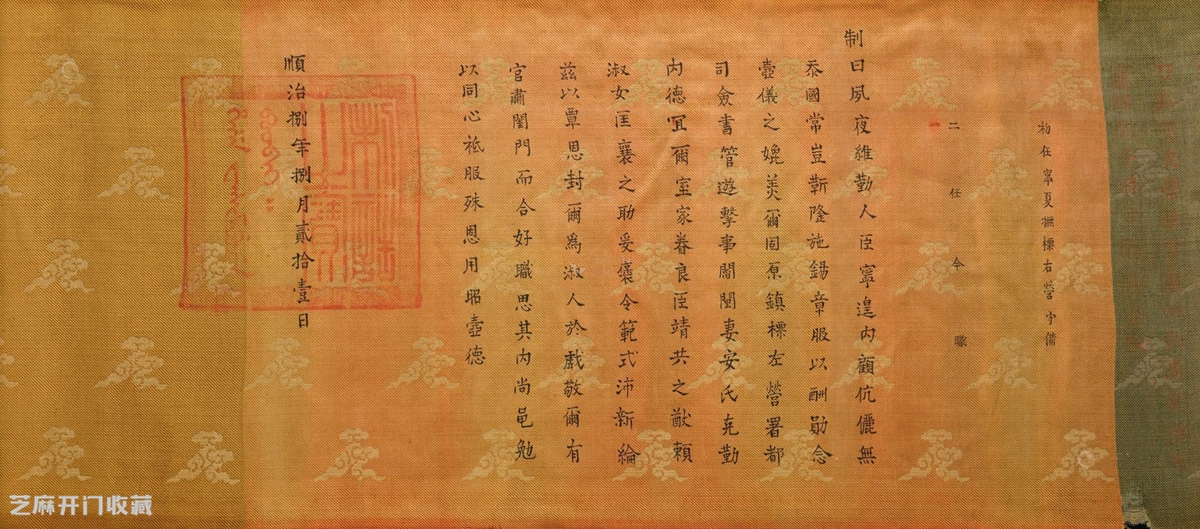 初任寧夏撫標右營守備
二任今職
制曰夙夜維勤人臣寧遑内顧伉儷無
忝國常豈靳隆施錫章服以酬勛念
壼儀之媲美爾固原鎮標左營署都
司僉書管遊擊事關閏妻安氏克勤
内德冝爾室家眷良臣靖共之猷賴
淑女匡襄之助妥褒令範式沛新綸
兹以覃恩封爾為淑人於戲敬爾有
官肅閨門而合好職思其内尚黽勉
以同心祗服殊恩用昭壼德
順治捌年捌月貳拾壹日
制誥之寶
芝麻开门收藏